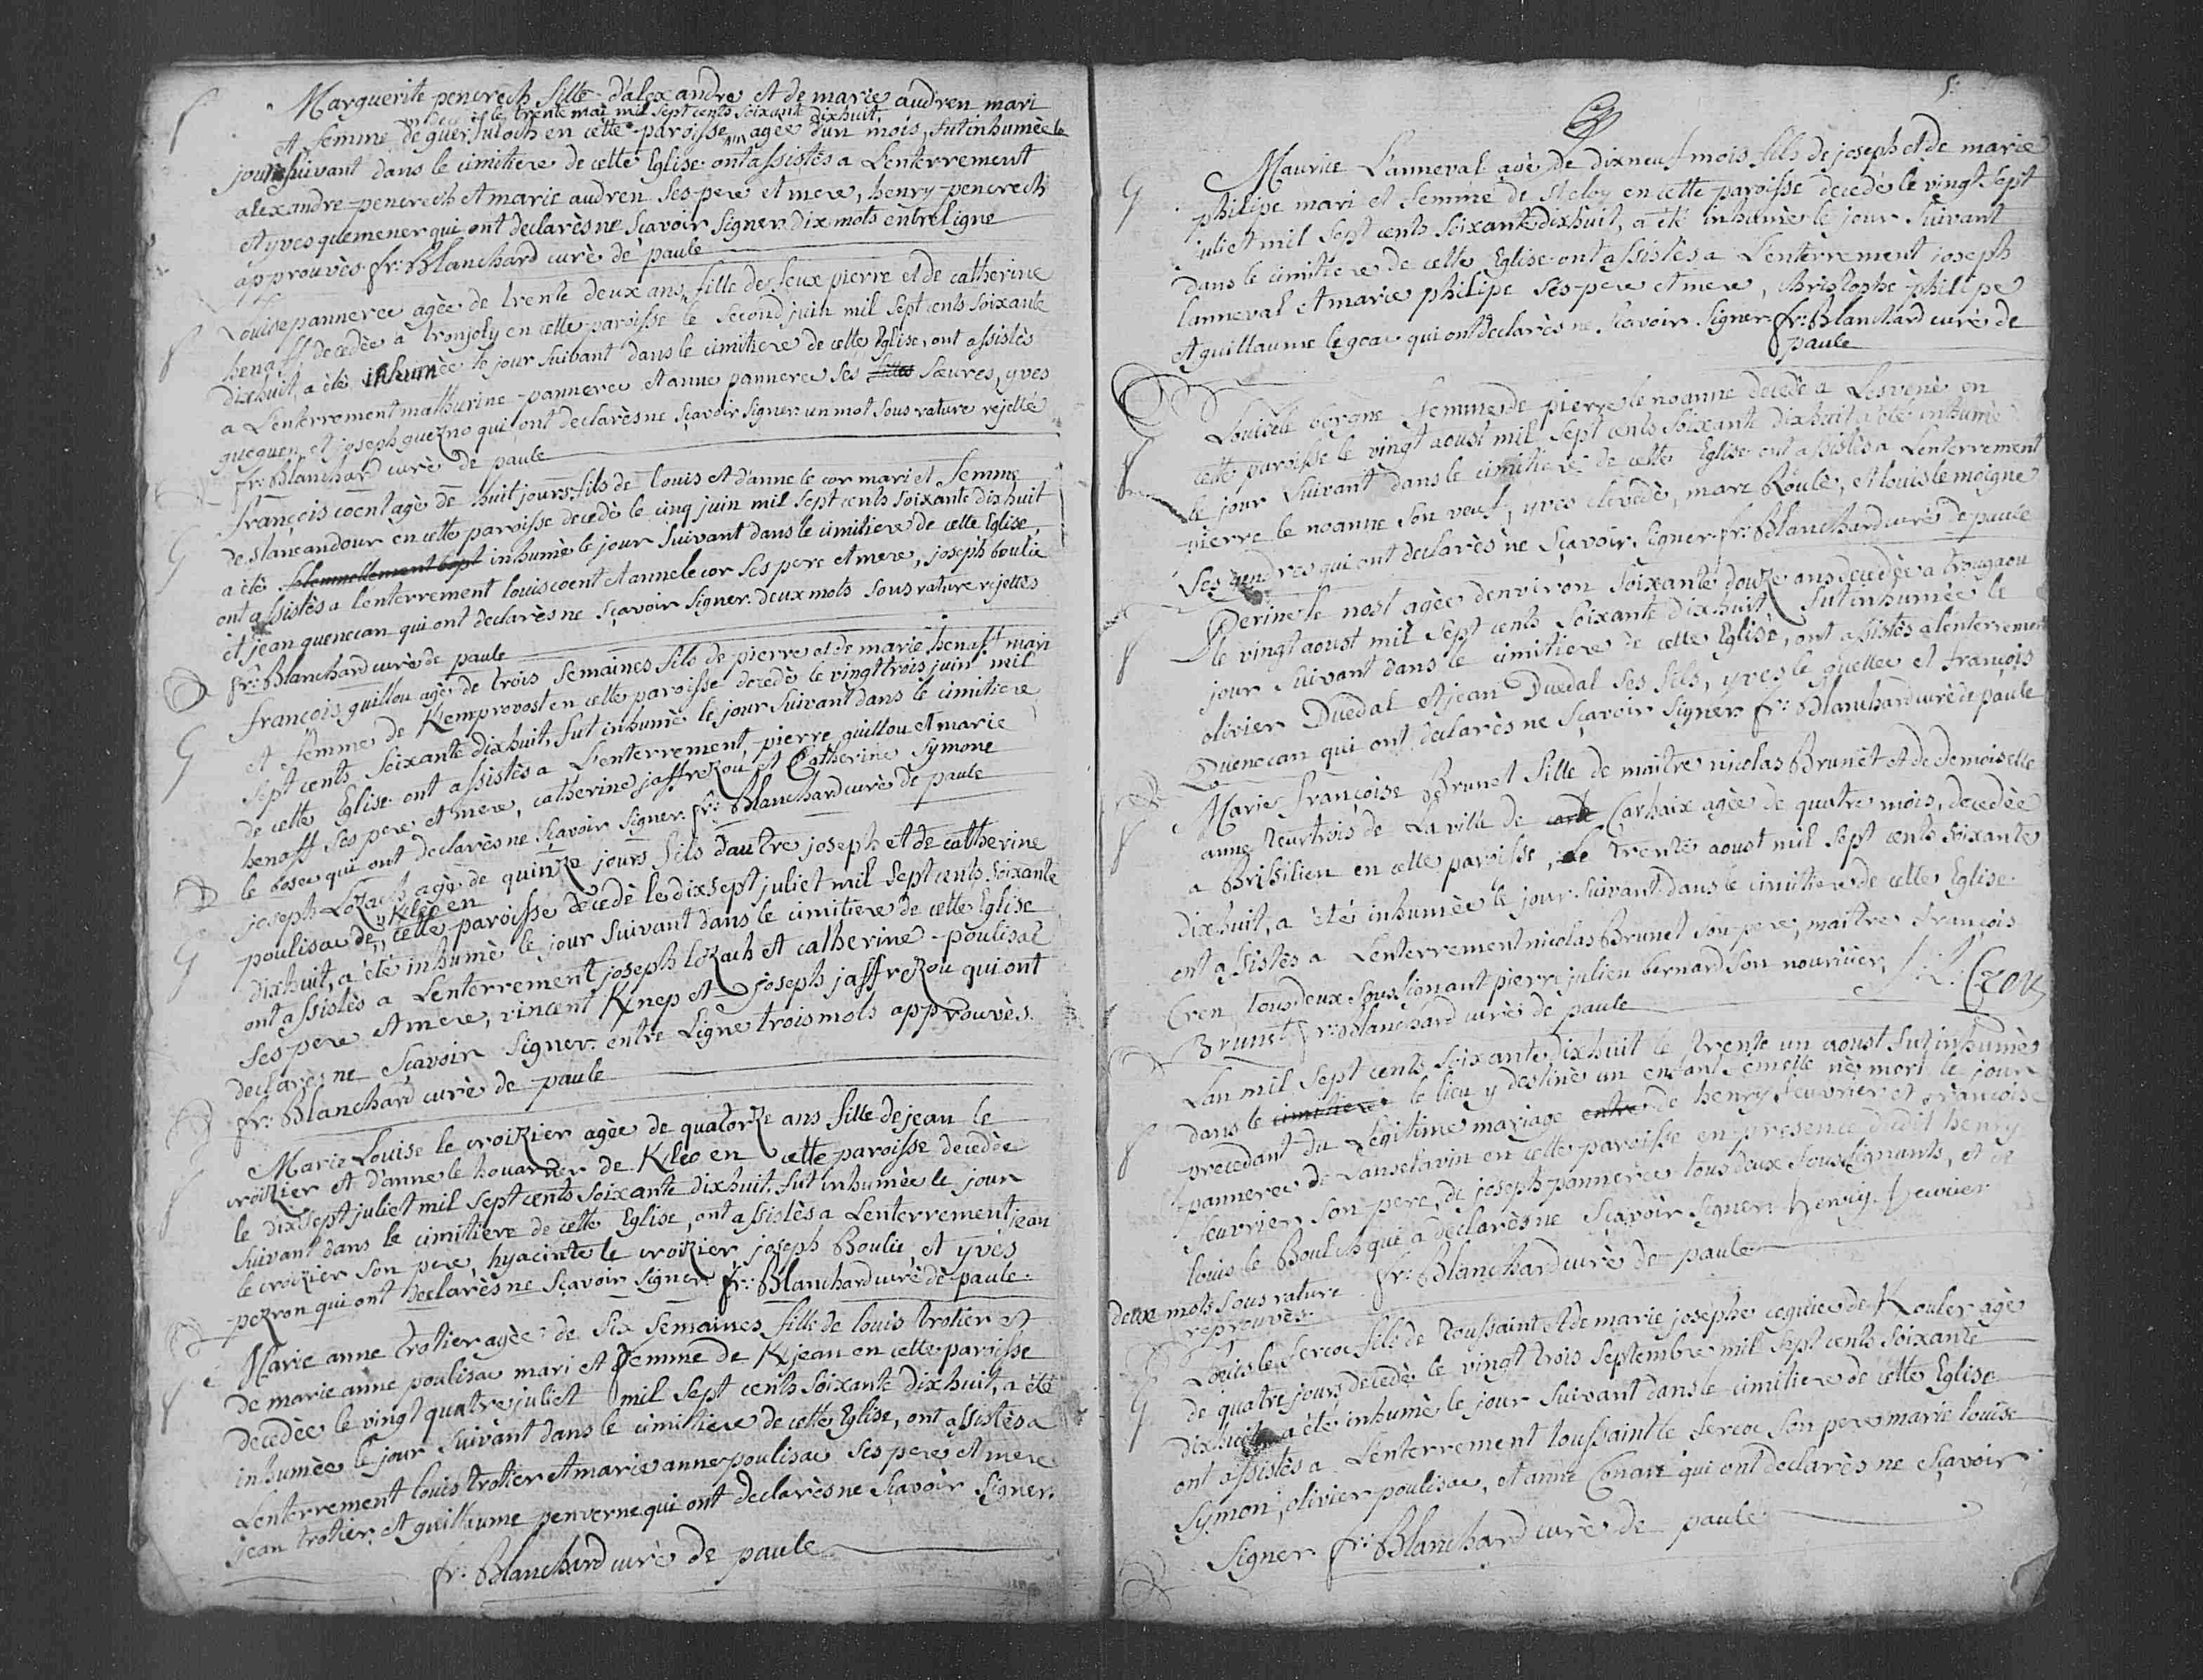 f
Marguerite pencrech fille d'alexandre et de marie audren mari
le trente mai mil sept cents soixante dixhuit
et femme de guer, fuloch en cette paroisse agée d'un mois, fut inhumèe le
jour suivant dans le cimitiere de cette Eglise. ont assistès a L'enterrement
alexandre pencrech et marie audren ses pere et mere, henry pencrech
et yves quemener qui ont declarès ne sçavoir signer. dix mots entreligne
approuvès. fr: Blanchard curè de paule
f
Louise pannerec agèe de trente deux ans, fille des feux pierre et de catherine
henaff decedèe a tronjoly en cette paroisse le second juin mil sept cents soixante
dixhuit, a étè inhumèe le jour suivant dans le cimitiere de cette Eglise, ont assistès
a L'enterrement mathurine pannerec et anne pannerec ses filles sœures, yves
gueguen et joseph guezno qui ont declarès ne sçavoir signer. un mot sous rature rejettè
fr: Blanchard curè de paule
G
françois coent agè de huit jours, fils de louis et d'anne le cor mari et femme
de stancandour en cette paroisse decedè le cinq juin mil sept cents soixante dixhuit
a étè solemnellement bapt inhumè le jour suivant dans le cimitiere de cette Eglise,
ont assistès a lenterrement louis coent et anne le cor ses pere et mere, joseph boulic
et jean quenecan qui ont declarès ne sçavoir signer. deux mots sous rature rejettès
fr: Blanchard curè de paule
G
françois guillou agè de trois semaines fils de pierre et de marie henaff mari
et femme de Kemprovost en cette paroisse decedè le vingt trois juin mil
sept cents soixante dixhuit, fut inhumè le jour suivant dans le cimitiere
de cette Eglise. ont assistès a L'enterrement, pierre guillou et marie
henaff ses pere et mere, catherine jaffrezou et Catherine symone
le bosec qui ont declarès ne sçavoir signer. fr: Blanchard curè de paule
G
joseph Lozach agè de quinze jours fils d'autre joseph et de catherine
Kleo en
poulisac de cette paroisse decedè le dixsept juliet mil sept cents soixante
dixhuit, a étè inhumè le jour suivant dans le cimitiere de cette Eglise
ont assistès a L'enterrement joseph lozach et catherine poulisac
ses pere et mere, vincent Knep et joseph jaffrezou qui ont
declarès ne sçavoir signer. entre Ligne trois mots approuvès.
fr: Blanchard curè de paule
f
Marie Louise le croizier agèe de quatorze ans fille de jean le
croizier et d'anne le houarner de Kleo en cette paroisse decedèe
le dixsept juliet mil sept cents soixante dixhuit, fut inhumèe le jour
suivant dans le cimitiere de cette Eglise, ont assistès a L'enterrement jean
le croizier son pere, hyacinte le croizier, joseph Boulic, et yves
pezron qui ont declarès ne sçavoir signer. fr: Blanchard curè de paule.
f
Marie anne trotier agèe de six semaines fille de louis trotier et
de marie anne poulisac mari et femme de Kjean en cette paroisse
decedèe le vingt quatre juliet mil sept cents soixante dixhuit, a étè
inhumèe le jour suivant dans le cimitiere de cette Eglise, ont assistès a
L'enterrement louis trotier et marie anne poulisac ses pere et mere
jean trotier, et guillaume penverne qui ont declarès ne sçavoir signer.
fr: Blanchard curè de paule
5.
G
Maurice Lanneval agè de dixneuf mois fils de joseph et de marie
philipe mari et femme de St eloy en cette paroisse decedè le vingt sept
juliet mil sept cents soixante dixhuit, a étè inhumè le jour suivant
dans le cimitiere de cette Eglise. ont assistès a L'enterrement joseph
lanneval et marie philipe ses pere et mere, christophe philipe
et guillaume le goac qui ont declarès ne sçavoir signer. fr: Blanchard curè de
paule
f
bergne femme de pierre le noanne decedè a Lesvenè en
cette paroisse le vingt aoust mil sept cents soixante dixhuit a étè inhumè
le jour suivant dans le cimitiere de cette Eglise. ont assistès a Lenterrement
pierre le noanne son veuf, yves clevedè, marc Roule, et louis le moigne
ses gendres qui ont declarès ne sçavoir signer. fr: Blanchard curè de paule
f
Perine le nost agèe d'environ soixante douze ans decedèe a trougaou
le vingt aoust mil sept cents soixante dixhuit, fut inhumèe le
jour suivant dans le cimitiere de cette Eglise, ont assistès a lenterrement
olivier Duedal et jean Duedal ses fils, yves le guellec et françois
Quenecan qui ont declarès ne sçavoir signer. fr: Blanchard curè de paule
f
Marie françoise Brunet fille de maître nicolas Brunet et de demoiselle
anne teurtrois de La ville de carh Carhaix agèe de quatre mois, decedèe
a Brisilien en cette paroisse, le trente aoust mil sept cents soixante
dixhuit, a étè inhumèe le jour suivant dans le cimitiere de cette Eglise.
ont assistès a Lenterrement nicolas Brunet son pere, maître françois
Cren, tous deux soussignant pierre julien bernard son nouricier,
Brunet fr: Blanchard curè de paule
f
L'an mil sept cents soixante dixhuit le trente un aoust fut inhumè
dans le cimitiere le lieu y destinè un enfant femelle nè mort le jour
precedant du Légitime mariage entre de henry feuvrier et françoise
pannerec de Lansclavin en cette paroisse en presence dudit henry
feuvrier son pere, de joseph pannerec tous deux soussignants, et de
louis le Boulch qui a declarès ne sçavoir signer. henry feuvrier
deux mots sous rature fr: Blanchard curè de paule
reprouvès.
G
Louis le fercoc fils de toussaint et de marie josephe cequiec de Kouler agè
de quatre jours decedè le vingt trois septembre mil sept cents soixante
dixhuit a étè inhumè le jour suivant dans le cimitiere de cette Eglise
ont assistès a L'enterrement toussaint le fercoc son pere, marie louise
symon, olivier poulisac, et anne Conan qui ont declarès ne sçavoir
signer. fr: Blanchard curè de paule.